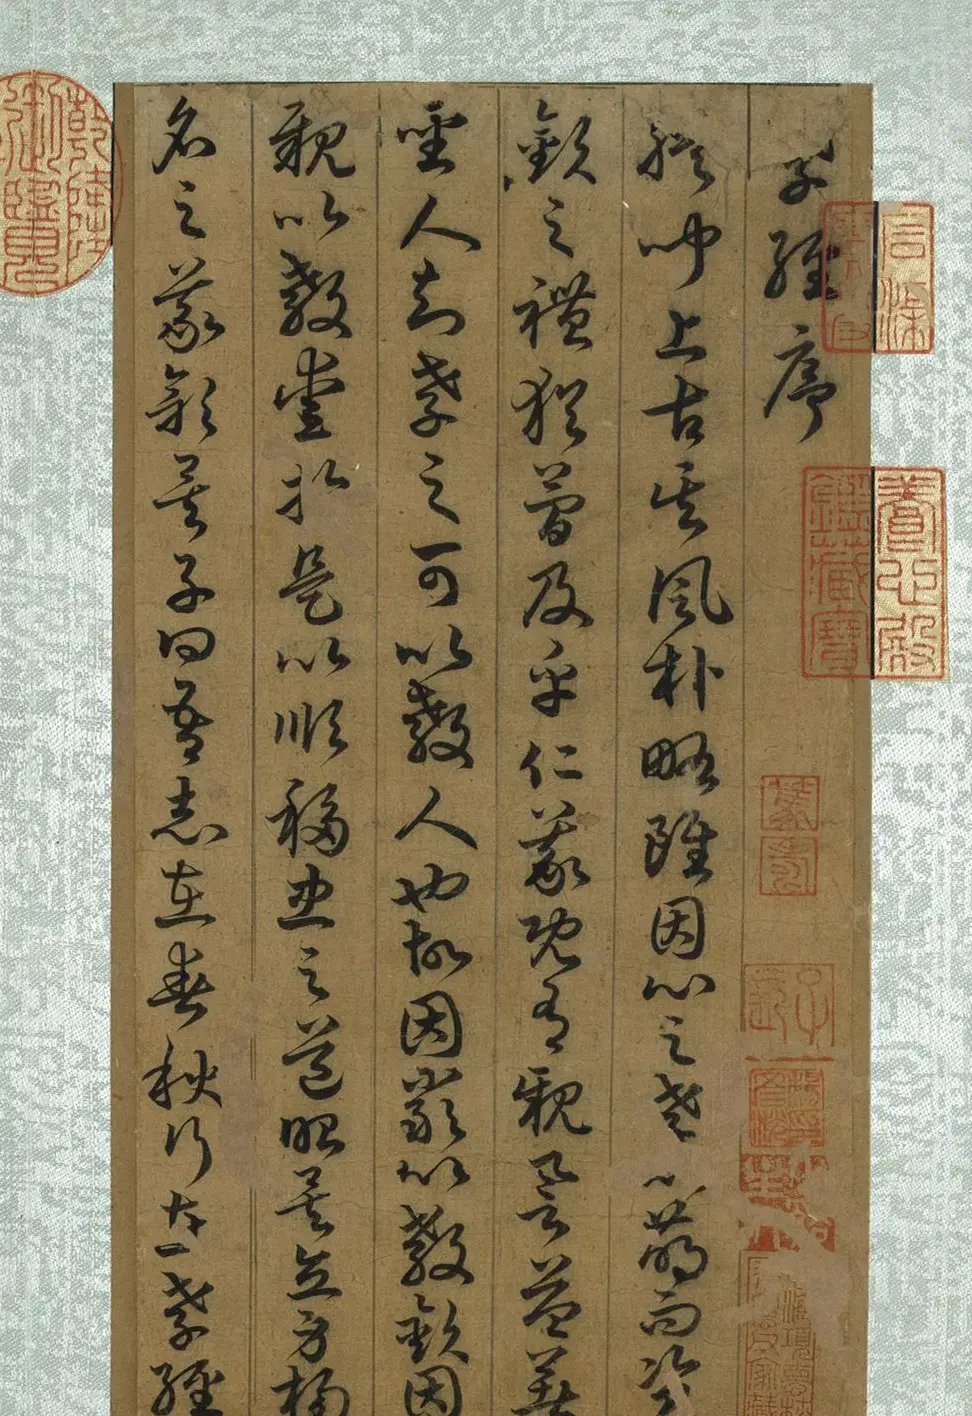 孝經序
朕聞上古其風朴略雖因心之孝以萌而資
敬之禮猶簡及乎仁義既有親譽益著
聖人知孝之可以教人也故因嚴以教敬因
親以教愛於是以順移忠之道昭矣立身揚
名之義彰矣子曰吾志在春秋行在孝經
石渠寶笈
養心殿鑑藏寶